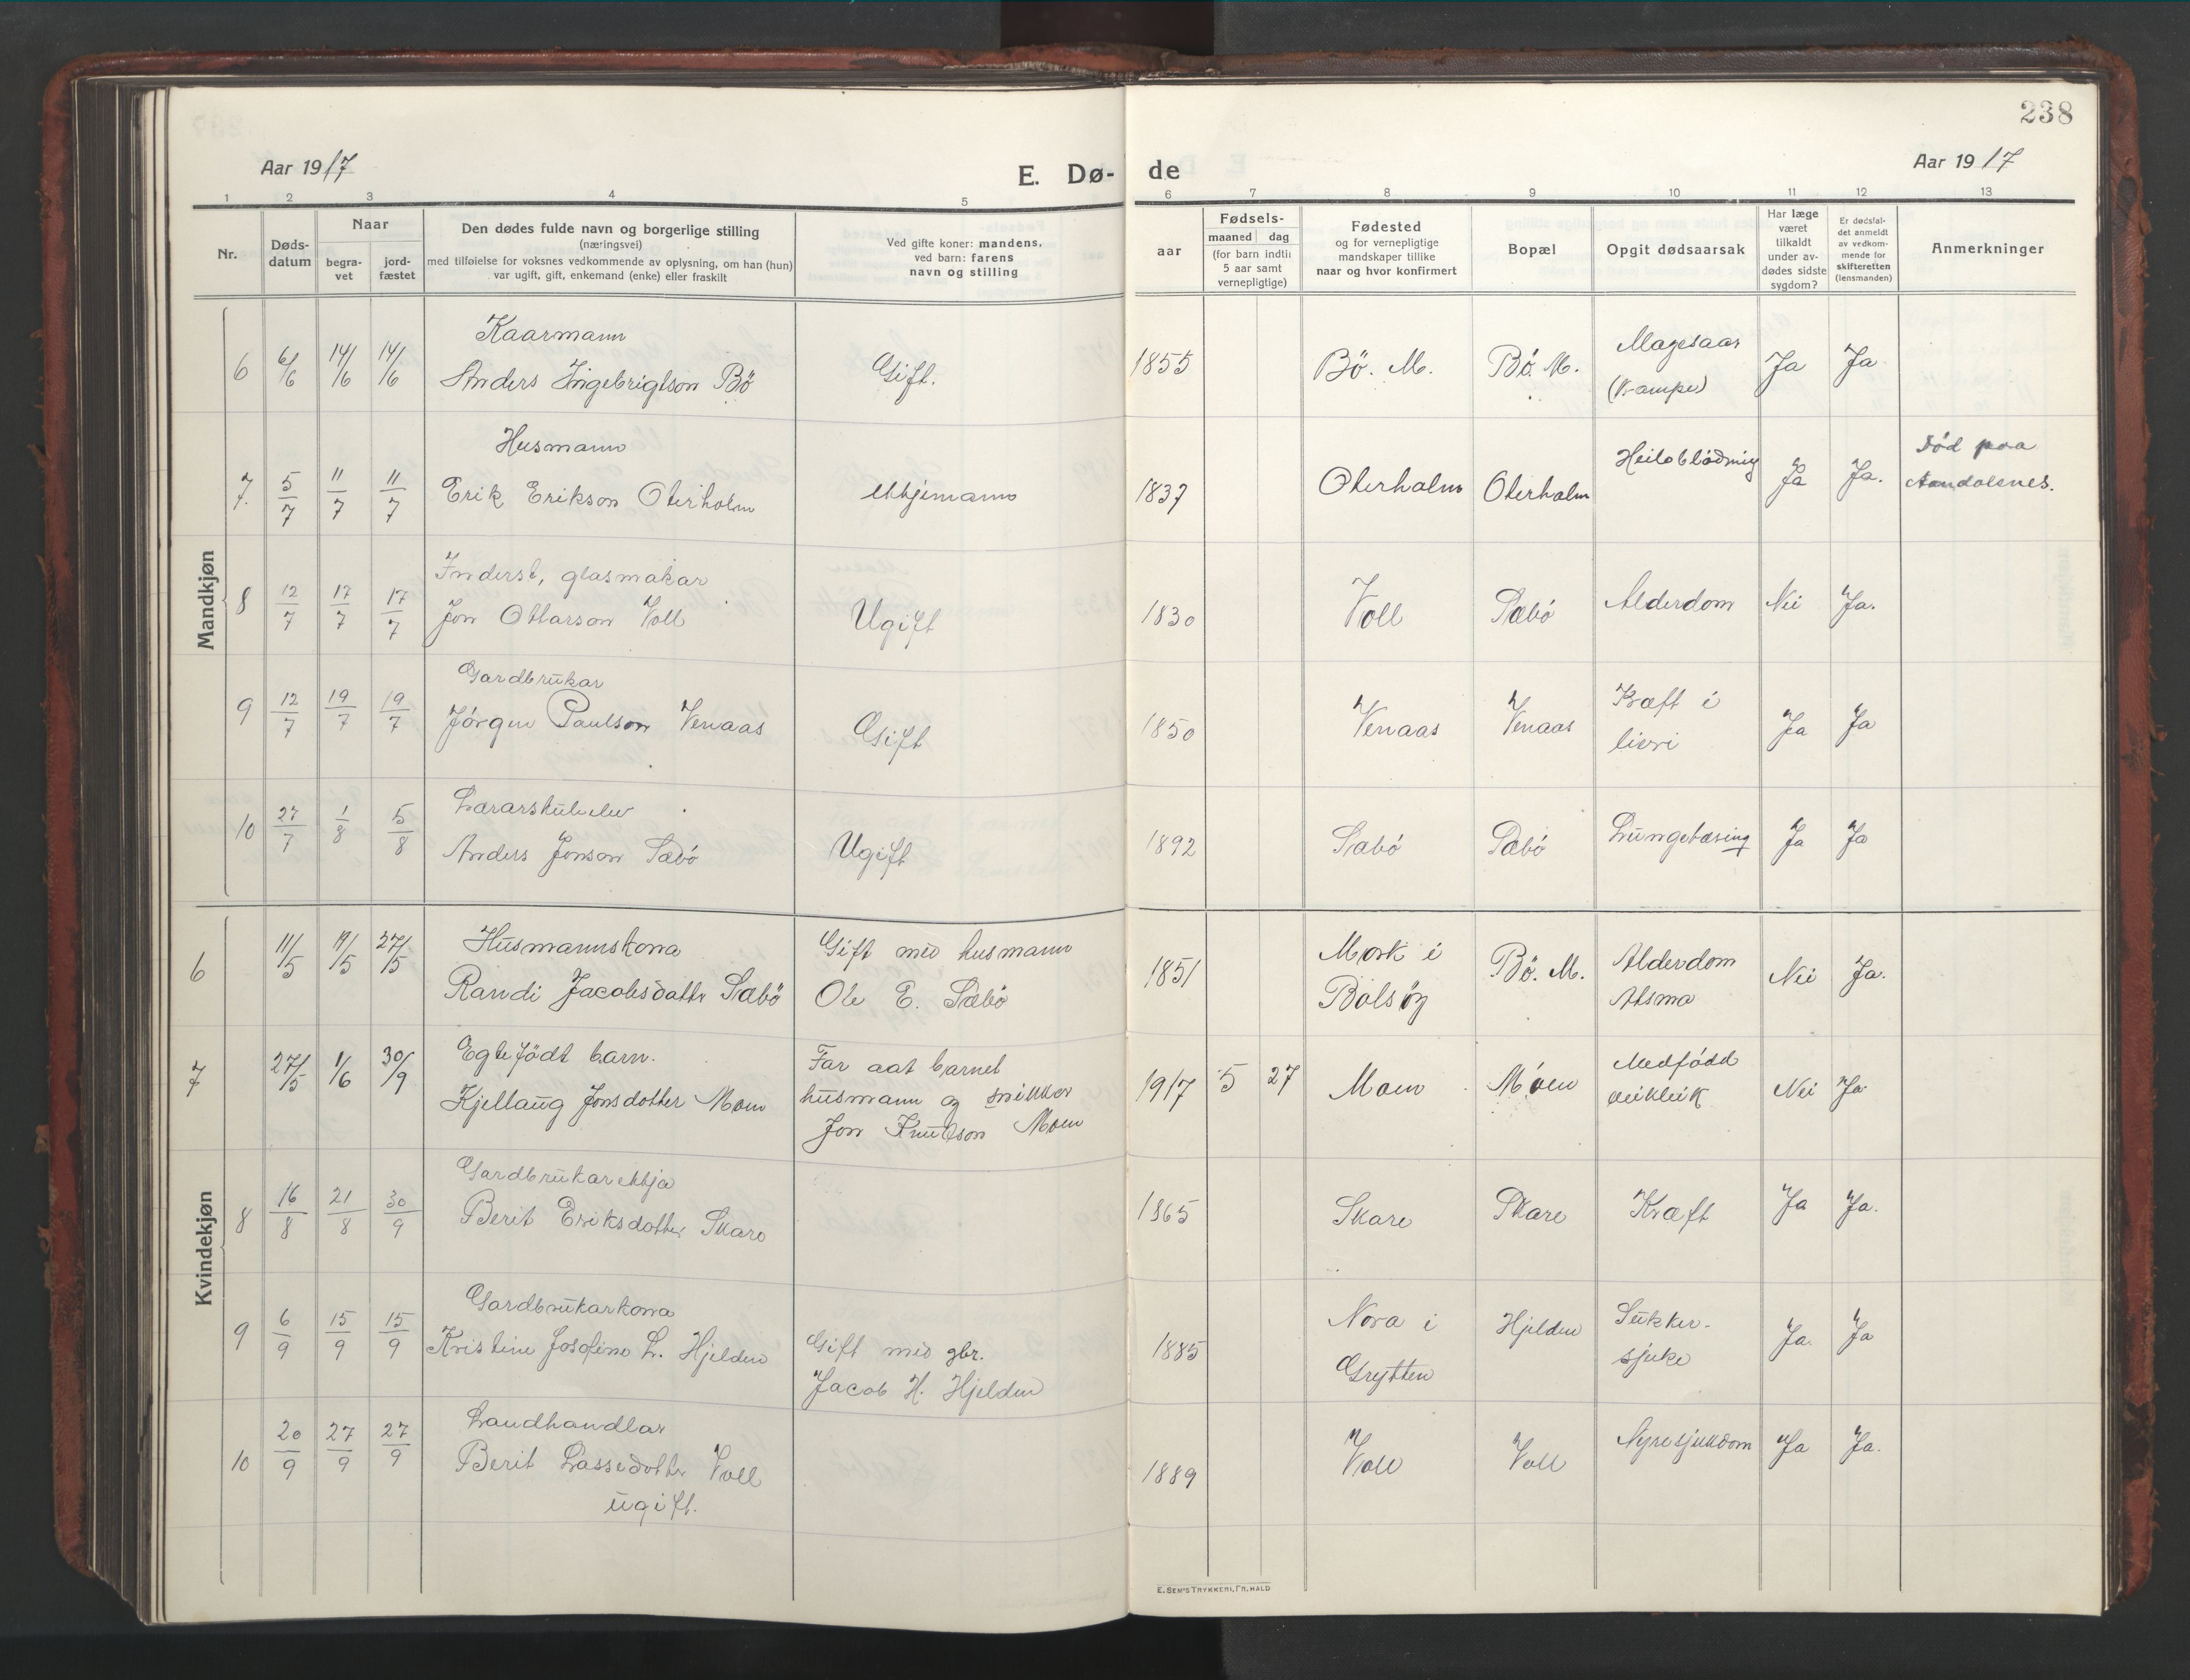 238
Aar 1917
E. Dø-
de
Aar 1917
1 2 3 4 5 6 7 8 9 10 11 12 13
Nr.
Døds-
datum
Naar
begra-
vet
jord-
fæstet
Den dødes fulde navn og borgerlige stilling
(næringsvei)
med tilføielse for voksnes vedkommende av oplysning, om han (hun)
var ugift, gift, enkemand (enke) eller fraskilt
Ved gifte koner: mandens,
ved barn: farens
navn og stilling
aar
Fødsels-
maaned dag
(for barn indtil
5 aar samt
vernepligtige)
Fødested
og for vernepligtige
mandskaper tillike
naar og hvor konfirmert
Bopæl
Opgit dødsaarsak
Har læge
været
tilkaldt
under av-
dødes sidste
sygdom?
Er dødsfal-
det anmeldt
av vedkom-
mende for
skifteretten
(lensmanden)
Anmerkninger
Mandkjøn
6 6/6 14/6 14/6
Kaarmann
Anders Ingebrigtson Bö
Gift.
1855
Bö. M.
Bö. M.
Magesaar
(Krampe)
Ja
Ja
7. 5/7 11/7 11/7
Husmann
Erik Erikson Oterholm
ekkjemann
1837
Oterholm
Oterholm
Heileblödning
Ja
Ja.
Död paa
Aandalsnes.
8 12/7 17/7 17/7
Inderst, glasmakar
Jon Ottarson Voll
Ugift
1830
Voll
Sæbö
Alderdom
Nei
Ja.
9 12/7 19/7 19/7
Gardbrukar
Jörgen Paulson Venaas
Gift
1850
Venaas
Venaas
Kræft i
livri
Ja
Ja
10 27/7 1/8 5/8
Lærarskuleelev
Anders Jonson Sæbö
Ugift
1892
Sæbö
Sæbö
Lungetæring
Ja
Ja
Kvindekjøn
6 11/5 19/5 27/5
Husmannskona
Randi Jacobsdotter Sæbö
Gift med husmann
Ole E. Sæbö
1851
Mork i
Bolsöy
Bö. M.
Alderdom
Atsma
Nei
Ja.
7 27/5 1/6 30/9
Egtefödt barn.
Kjellaug Jonsdotter Moen
Far aat barnet
husmann og snikkar
Jon Knutson Moen
1917 5 27
Moen
Moen
Medfödd
veikleik
Nei
Ja.
8 16/8 21/8 30/9
Gardbrukarekkja
Berit Eriksdotter Skare
1865
Skare
Skare
Kræft
Ja
Ja.
9 6/9 15/9 15/9
Gardbrukarkona
Kristine Josefine L. Hjelden
Gift med gbr.
Jacob H. Hjelden
1885
Nora i
Grytten
Hjelden
Sukker-
sjuke
Ja.
Ja
10 20/9 27/9 27/9
Landhandlar
Berit Lassedotter Voll
ugift.
1889
Voll
Voll
Nyresjukdom
Ja
Ja.
E. SEM'S TRYKKERI, FR.HALD